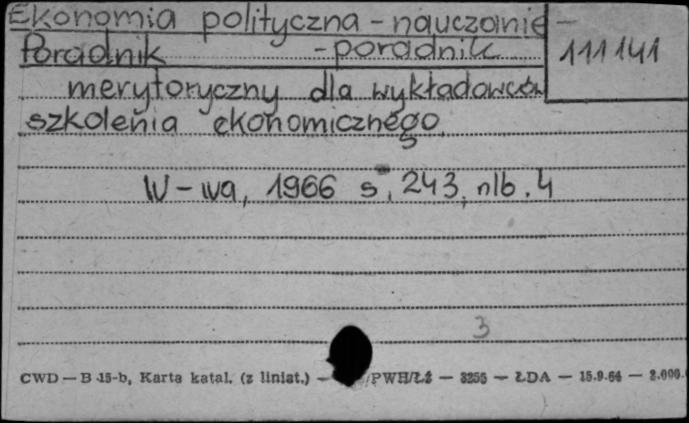 Ekonomia polityczna - nauczanie -
Poradnik - poradnik
111141
merytoryczny dla wykładowców
szkolenia ekonomicznego
W-wa, 1966 s. 243, nlb. 4
3
CWD — B 15-b, Karta katal. (z liniat.) — PWH/Łż — 3255 — ŁDA — 15.9.64 — 2.000.